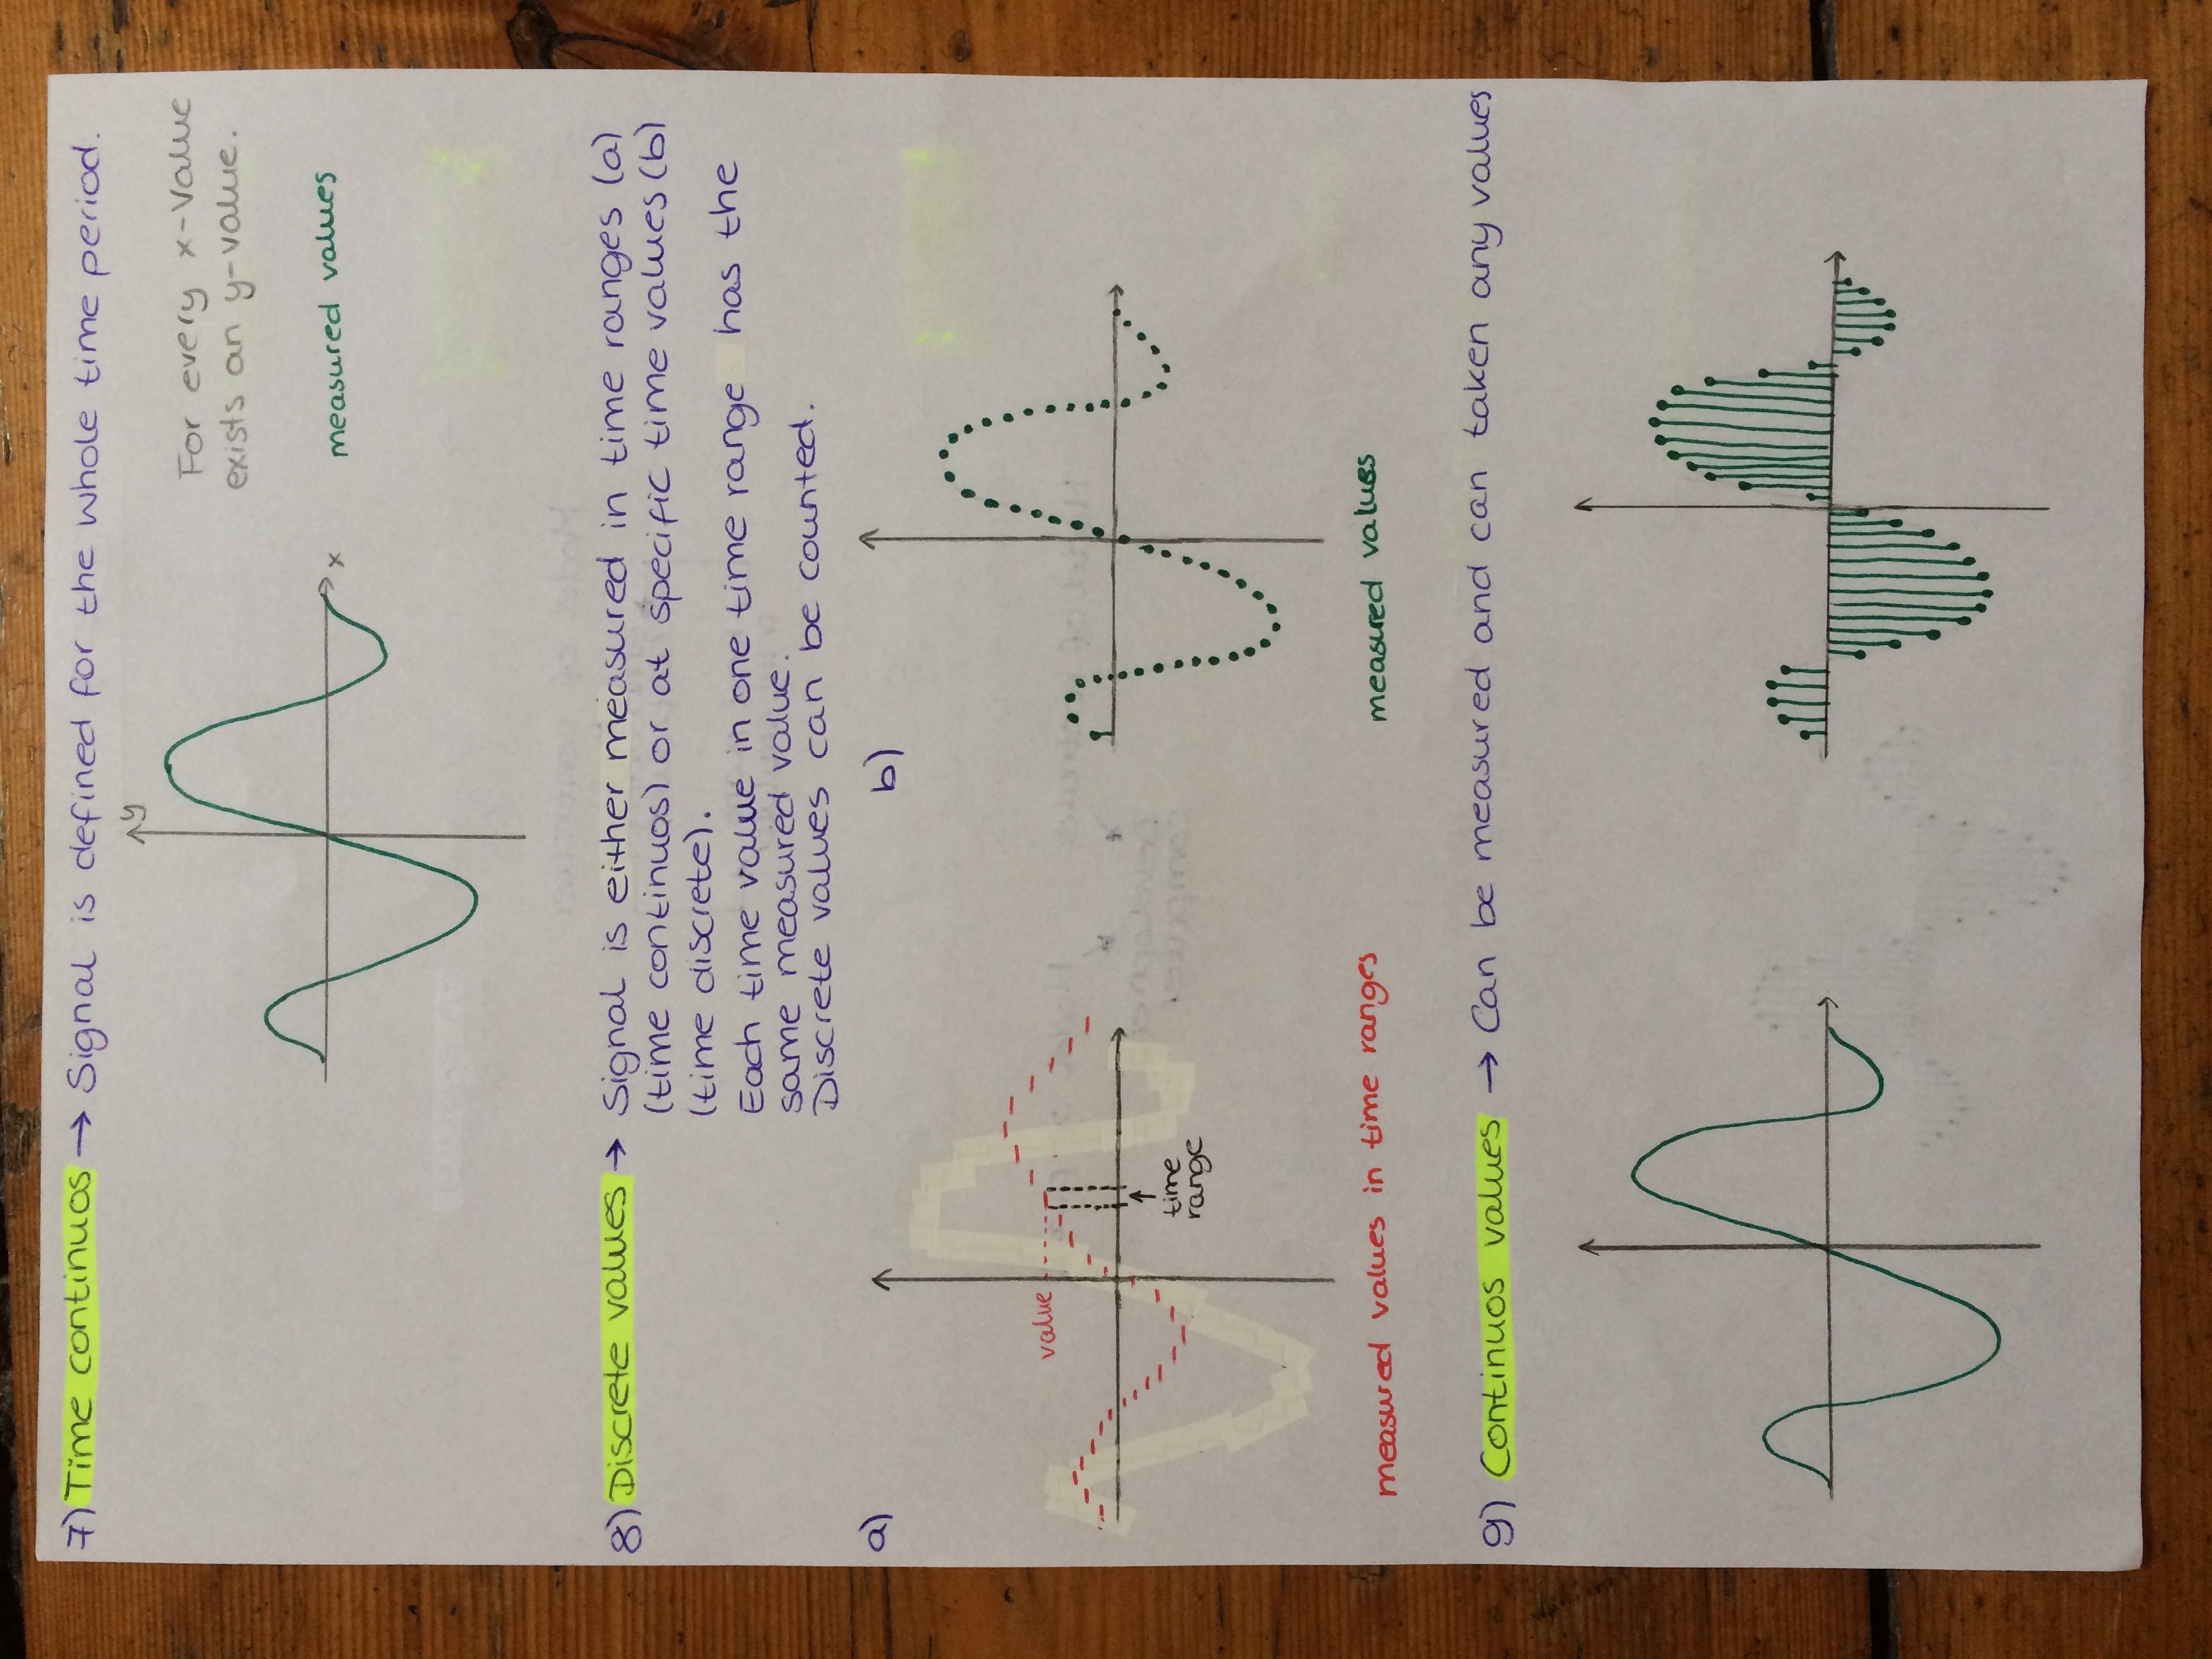 7) Time continuos → Signal is defined for the whole time period.
y
For every x-Value
exists an y-value.
x
measured values
8) Discrete values → Signal is either measured in time ranges (a)
(time continuos) or at specific time values (b)
(time discrete).
Each time value in one time range has the
same measured value.
Discrete values can be counted.
a)
b)
value
time
range
measured values in time ranges
measured values
9) Continuos values → Can be measured and can taken any values